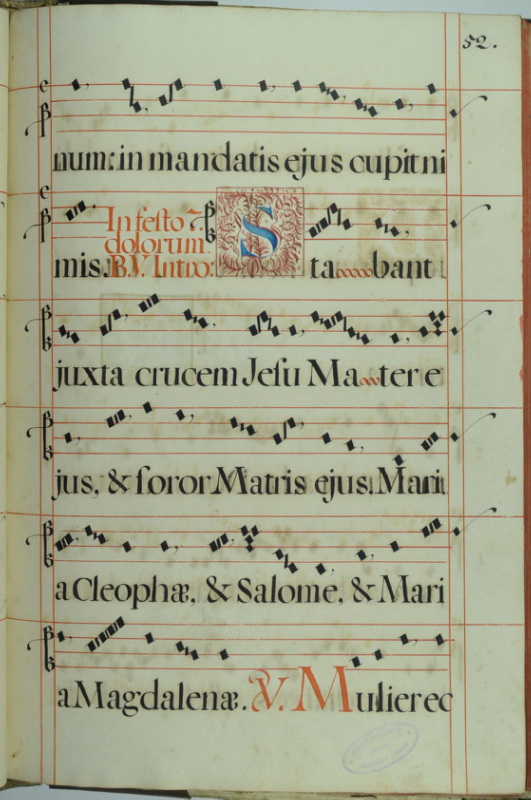 52.
num: in mandatis ejus cupit ni
mis. In festo 7. dolorum B.V. Intro: Sta bant
juxta crucem Jesu Ma ter e
jus, & soror Matris ejus, Mari
a Cleophæ, & Salome, & Mari
a Magdalenæ. V. Mulier ec